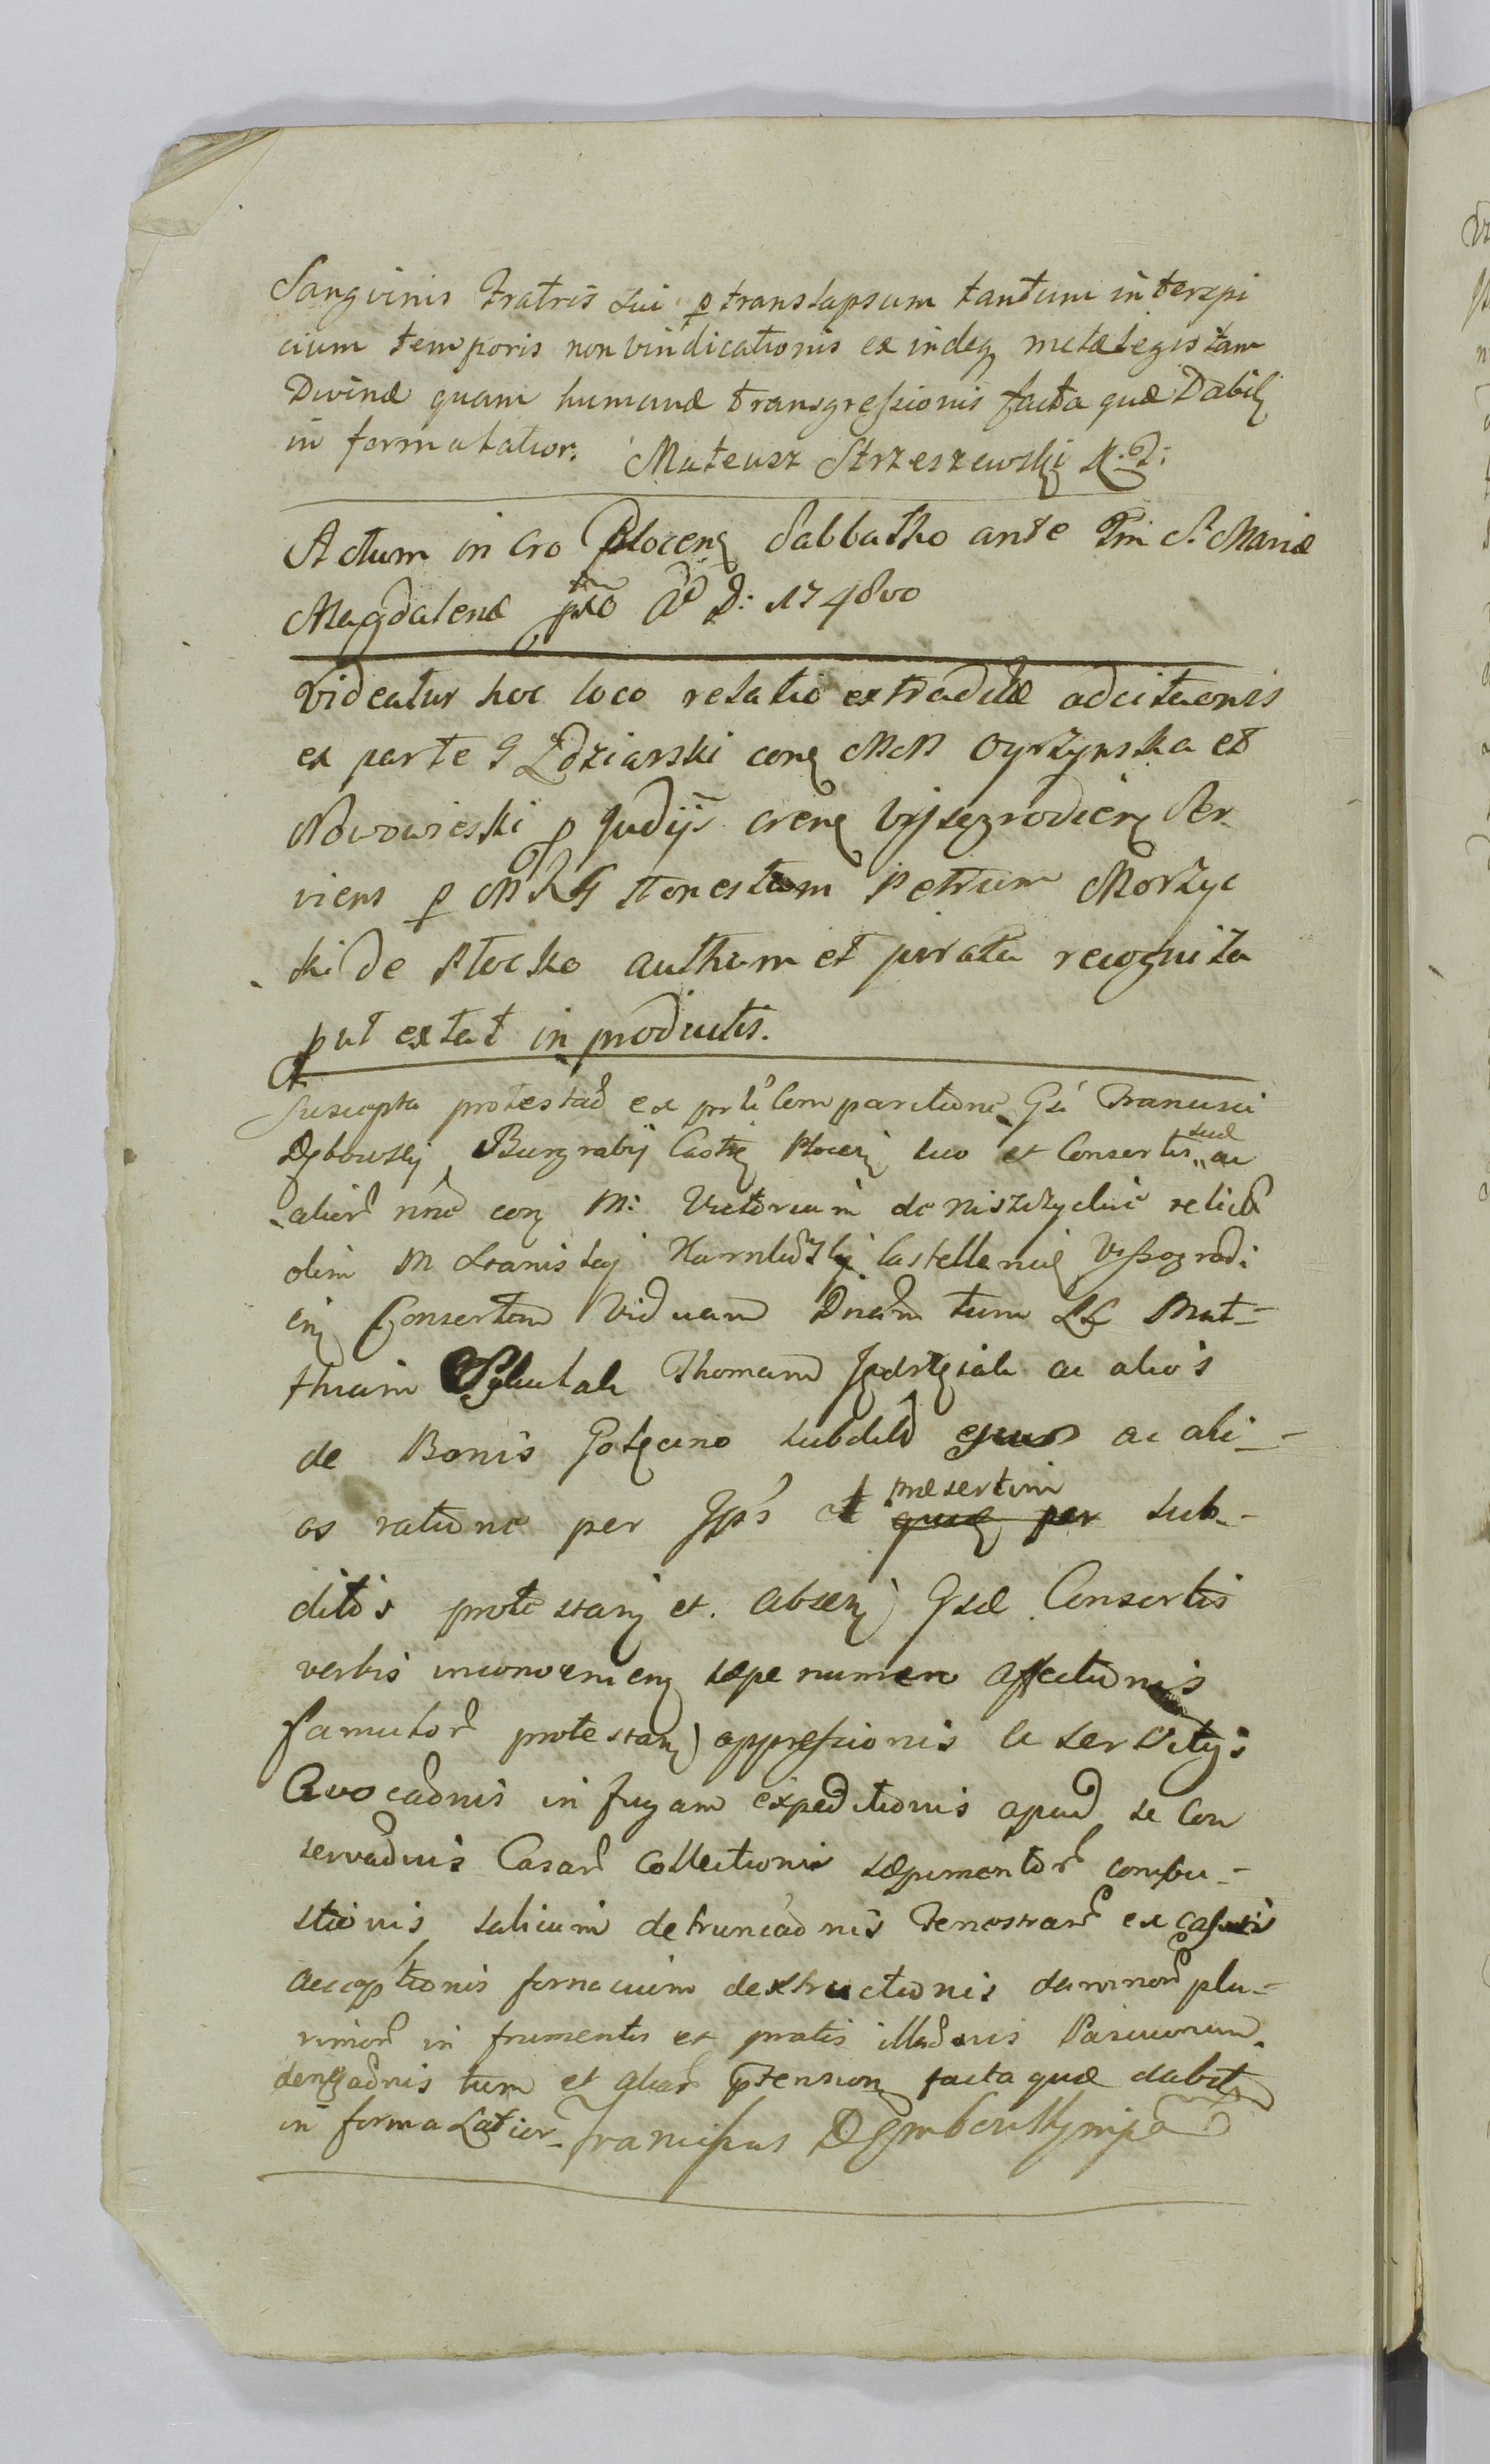 Sangvinis Fratris Sui p translapsum tantum interspi
cium temporis non vindicationis ex indeq metæ legis tam
Divinæ quam humanæ transgressionis facta quæ Dabit
in forma latior. Mateusz Strzeszewski
Actum in Cro Plocen Sabbatho ante Fm S. Mariæ
Magdalenæ pxo Ao D: 1748vo
Videatur hoc loco relatio extraditæ adcitaonis
ex parte G Zdziarski con MM Ogrzynska et
Nowowieski p Judijs cren Vyszogrodien Ser
viens p M R G Honestum Petrum Morzyc
ki de Plocko authum et jurata recognita
put extat in productis.
Suscepta protestao ex prli Comparitione Gsi Francisci
Dębowski Burgrabij Castr Plocen suo et Consortis suæ ac
alior nne con M: Victoriam de Niszczyckie relictæ
olim M Stanislaj Karnkowski Castellani Vyszogrodi:
en Consortem Viduam Dnam tum LL Mat-
thiam Thomam Jędrzeiak ac alios
de Bonis subdit ejus ac ali-
os ratione per Jps et quæ per præsertim sub-
ditos protestan et absen Gsæ Consortis
verbis inconvenien sæpe numero affectionis
famulor protestan oppressionis a servitijs
avocaonis in fugam expeditionis apud se con
servaonis Casar collectionis sæpimentor combu-
stionis salicum detruncaonis Fenestrar ex casis
acceptionis fornacium dextructionis damnor plu-
rimor in frumentis et pratis illaonis Pascuorum
dengaonis tum et aliar ptension facta quæ dabit
in forma Latior Franciscus Dęmbowski mpa